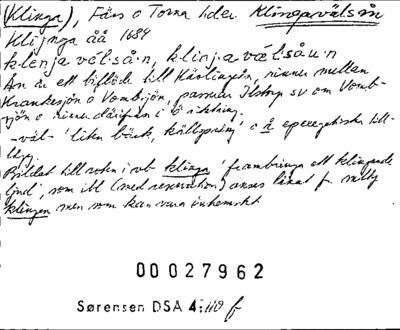 (Klinga), Färs o Torna hder Klingavälsån
Klinga åå 1684
klenja vel·så·n, klinja väl·såu·n
Ån är ett biflöde till Kävlingeån, rinner mellan
Krankesjön o Vombsjön, passerar Ilstorp sv om Vomb-
sjön o rinner därifrån i riktning.
-väl- 'liten bäck, källsprång' o å epexegetiskt till-
lägg.
Bildat till roten i vb klinga 'frambringa ett klingande
ljud', som ibl (med reservation) anses lånat fr mlty
klingen men som kan vara inhemskt.
00027962
Sørensen DSA 4: f